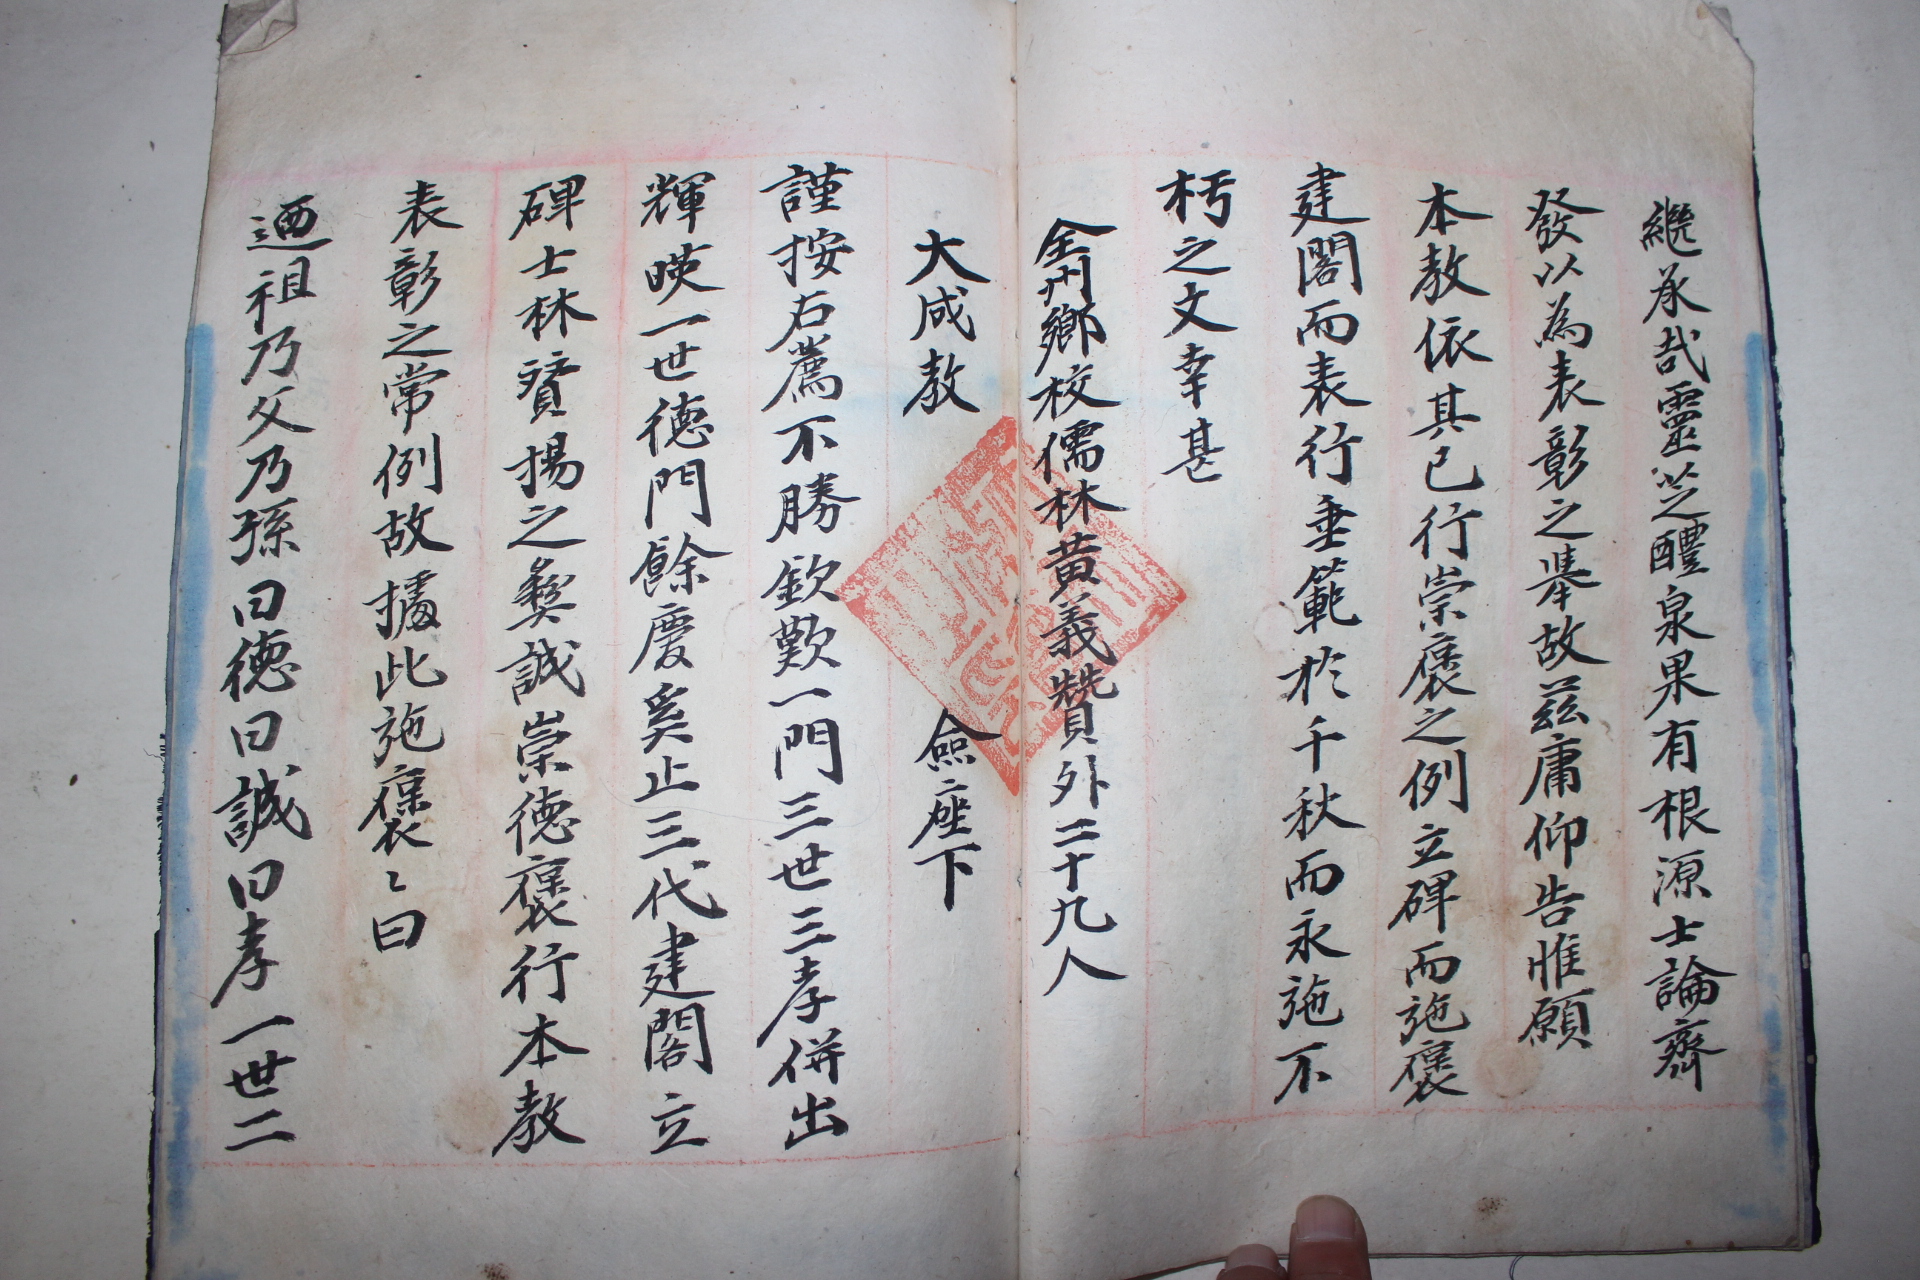 繼承哉靈芝醴泉果有根源士論齊
發以為表彰之擧故玆庸仰告惟願
本教依其已行崇褒之例立碑而施褒
建閣而表行垂範於千秋而永施不
朽之文幸甚
全州鄉校儒林黃義贊外二十九人
大成教 僉座下
謹按右薦不勝欽歎一門三世三孝併出
輝暎一世德門餘慶奚止三代建閣立
碑士林贊揚之彝誠崇德褒行本教
表彰之常例故據此施褒〻曰
迺祖乃父乃孫曰德曰誠曰孝一世二